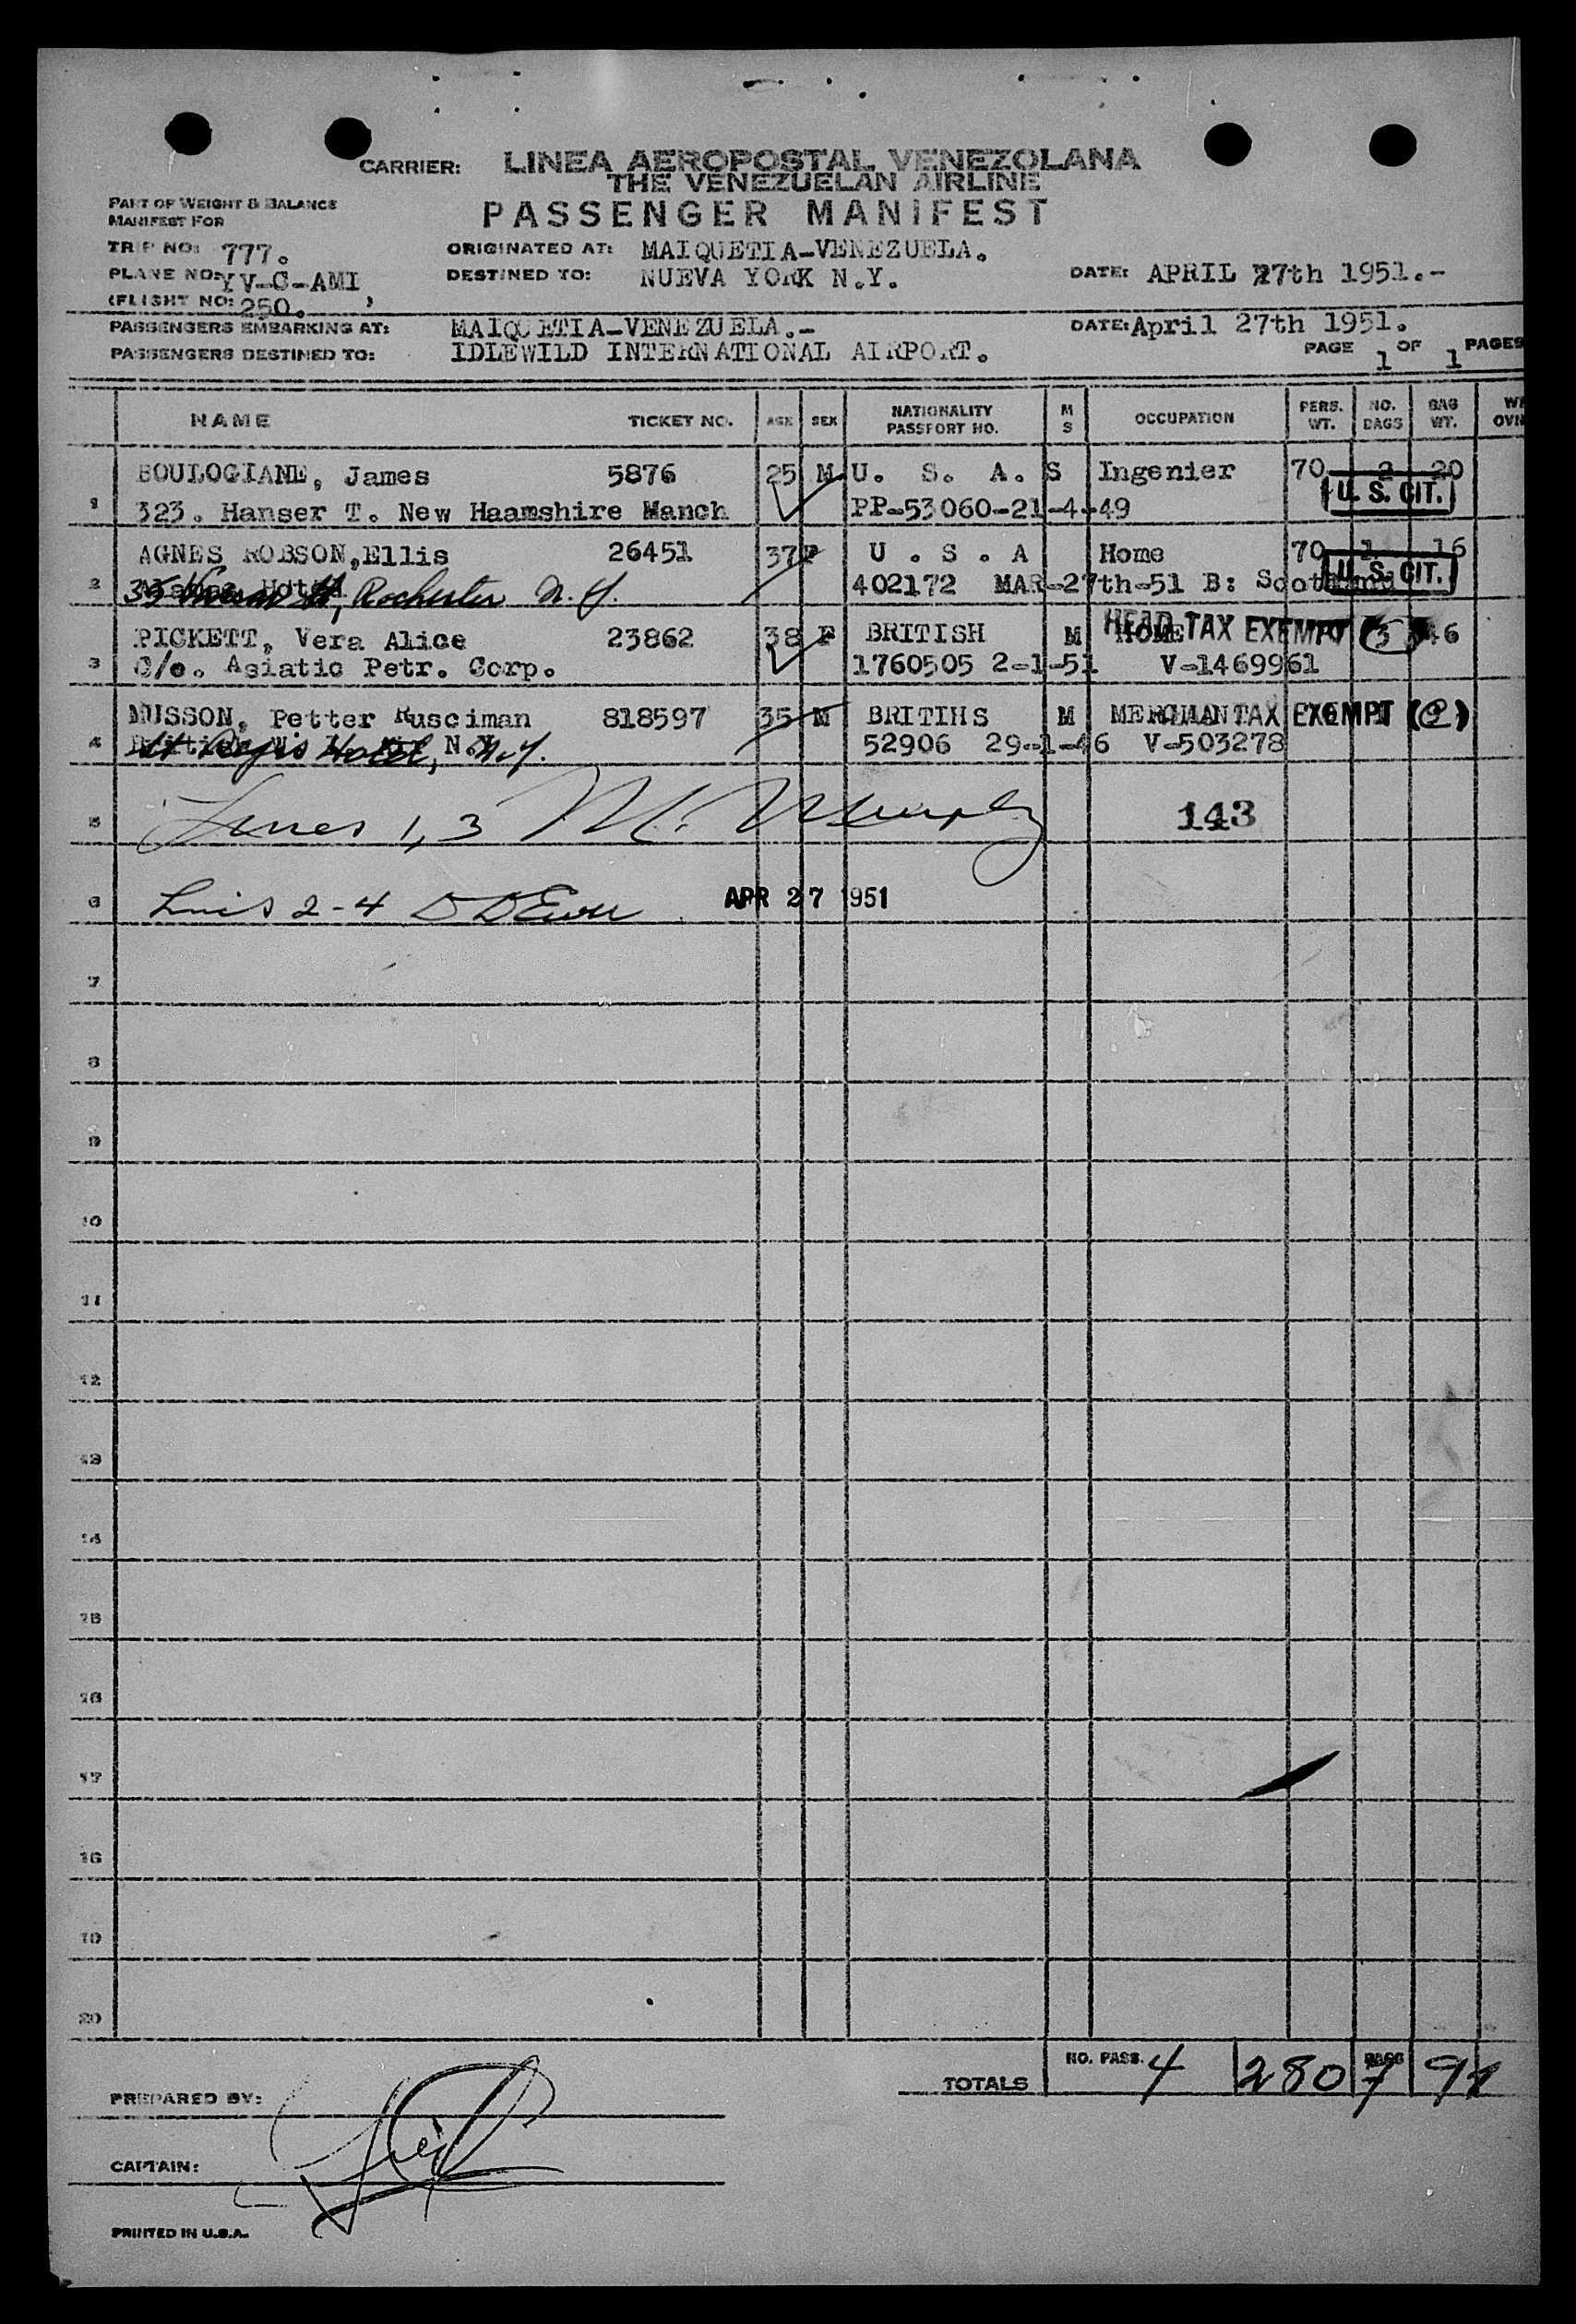 CARRIER: LINEA AEROPOSTAL VENEZOLANA
THE VENEZUELAN AIRLINE
PART OF WEIGHT & BALANCE
MANIFEST FOR
PASSENGER MANIFEST
TRIP NO: 777. ORIGINATED AT: MAIQUETIA-VENEZUELA.
PLANE NO: YV-C-AMI DESTINED TO: NUEVA YORK N.Y. DATE: APRIL 27th 1951.-
(FLIGHT NO: 250. )
PASSENGERS EMBARKING AT: MAIQUETIA-VENEZUELA.- DATE: April 27th 1951.
PASSENGERS DESTINED TO: IDLEWILD INTERNATIONAL AIRPORT. PAGE 1 OF 1 PAGES
NAME TICKET NO. AGE SEX NATIONALITY PASSPORT NO. M S OCCUPATION PERS. WT. NO. BAGS BAG WT.
BOULOGIANE, James 5876 25 M U. S. A. S Ingenier 70 2 20
1 323. Hanser T. New Haamshire Manch PP-53060-21-4-49 U. S. CIT.
AGNES ROBSON,Ellis 26451 37 F U . S . A Home 70 1 16
2 St, Rochester N.Y. 402172 MAR-27th-51 B: U. S. CIT.
PICKETT, Vera Alice 23862 38 F BRITISH M HOME HEAD TAX EXEMPT (3) 46
3 C/o. Asiatic Petr. Corp. 1760505 2-1-51 V-1469961
MUSSON, Petter Rusciman 818597 35 M BRITIHS M TAX EXEMPT
4 St Regis Hotel, N.Y. 52906 29-1-46 V-503278
5 Lines 1, 3 M. Murphy 143
6 2-4 APR 27 1951
7
8
9
10
11
12
13
14
15
16
17
18
19
20
TOTALS NO. PASS. 4 280 BAGS 7
PREPARED BY:
CAPTAIN:
PRINTED IN U.S.A.